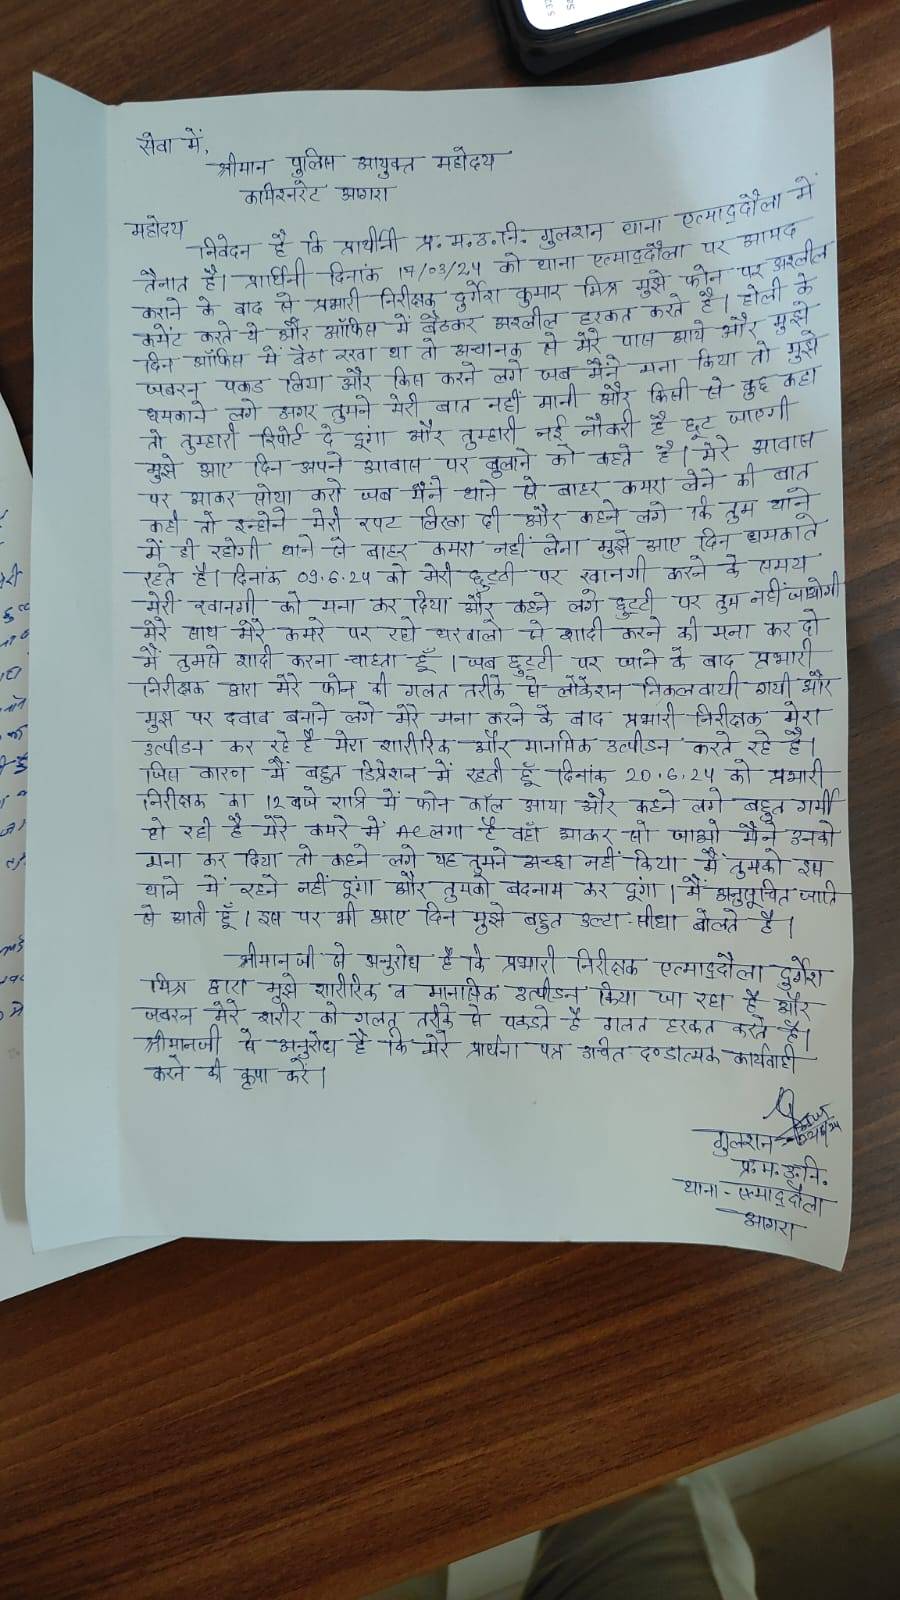 सेवा में,
श्रीमान पुलिस आयुक्त महोदय
कमिश्नरेट आगरा
महोदय
निवेदन है कि प्रार्थीनी प्र.म.उ.नि. गुलशन थाना एत्माद्दौला में
तैनात है। प्रार्थिनी दिनांक 17/03/24 को थाना एत्माद्दौला पर आमद
कराने के बाद से प्रभारी निरीक्षक दुर्गेश कुमार मिश्र मुझे फोन पर अश्लील
कमेंट करते थे और ऑफिस में बैठकर अश्लील हरकत करते है। होली के
दिन ऑफिस में बैठा रखा था तो अचानक से मेरे पास आये और मुझे
जबरन पकड लिया और किस करने लगे जब मैंने मना किया तो मुझे
धमकाने लगे अगर तुमने मेरी बात नहीं मानी और किसी से कुछ कहा
तो तुम्हारी रिपोर्ट दे दूंगा और तुम्हारी नई नौकरी है छूट जाएगी
मुझे आए दिन अपने आवास पर बुलाने को कहते है। मेरे आवास
पर आकर सोया करो जब मैंने थाने से बाहर कमरा लेने की बात
कही तो इन्होने मेरी रपट लिखा दी और कहने लगे कि तुम थाने
में ही रहोगी थाने से बाहर कमरा नहीं लेना मुझे आए दिन धमकाते
रहते है। दिनांक 09.6.24 को मेरी छुट्टी पर रवानगी करने के समय
मेरी रवानगी को मना कर दिया और कहने लगे छुट्टी पर तुम नहीं जाओगी
मेरे साथ मेरे कमरे पर रहो घरवालो से शादी करने की मना कर दो
मैं तुमसे शादी करना चाहता हूँ। जब छुट्टी पर जाने के बाद प्रभारी
निरीक्षक द्वारा मेरे फोन की गलत तरीके से लोकेशन निकलवायी गयी और
मुझ पर दवाब बनाने लगे मेरे मना करने के बाद प्रभारी निरीक्षक मेरा
उत्पीडन कर रहे है मेरा शारीरिक और मानसिक उत्पीडन करते रहे है।
जिस कारण मैं बहुत डिप्रेशन में रहती हूँ दिनांक 20.6.24 को प्रभारी
निरीक्षक का 12 बजे रात्रि में फोन कॉल आया और कहने लगे बहुत गर्मी
हो रही है मेरे कमरे में AC लगा है वहाँ आकर सो जाओ मैंने उनको
मना कर दिया तो कहने लगे यह तुमने अच्छा नहीं किया मैं तुमको इस
थाने में रहने नहीं दूंगा और तुमको बदनाम कर दूंगा। मैं अनुसूचित जाति
से आती हूँ। इस पर भी आए दिन मुझे बहुत उल्टा-सीधा बोलते है।
श्रीमानजी से अनुरोध है कि प्रभारी निरीक्षक एत्माद्दौला दुर्गेश
मिश्र द्वारा मुझे शारीरिक व मानसिक उत्पीडन किया जा रहा है और
जबरन मेरे शरीर को गलत तरीके से पकडते है गलत हरकत करते है।
श्रीमानजी से अनुरोध है कि मेरे प्रार्थना पत्र उचित दण्डात्मक कार्यवाही
करने की कृपा करें।
गुलशन
प्र.म.उ.नि.
थाना-एत्माद्दौला
आगरा